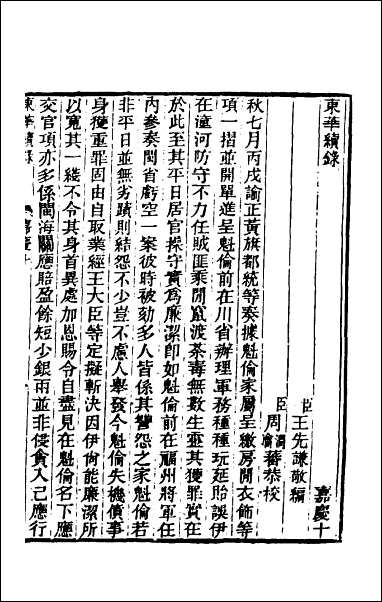 東華續錄
嘉慶十
臣王先謙敬編
臣周潤蕃恭校
秋七月丙戌諭正黃旗都統等奏據魁倫家屬呈繳房閒衣飾等
項一摺並開單進呈魁倫前在川省辦理軍務種種玩延貽誤伊
在潼河防守不力任賊匪乘閒竄渡荼毒無數生靈其獲罪實在
於此至其平日居官操守實為廉潔即如魁倫前在福州將軍任
內參奏閩省虧空一案彼時被劾多人皆係其讐怨之家魁倫若
非平日並無劣蹟則結怨不少豈不慮人舉發今魁倫失機僨事
身獲重罪固由自取業經王大臣等定擬斬決因伊尙能廉潔所
以寬其一綫不令其身首異處加恩賜令自盡見在魁倫名下應
交官項亦多係閩海關應賠盈餘短少銀兩並非侵貪入己應行
東華續錄
嘉慶十